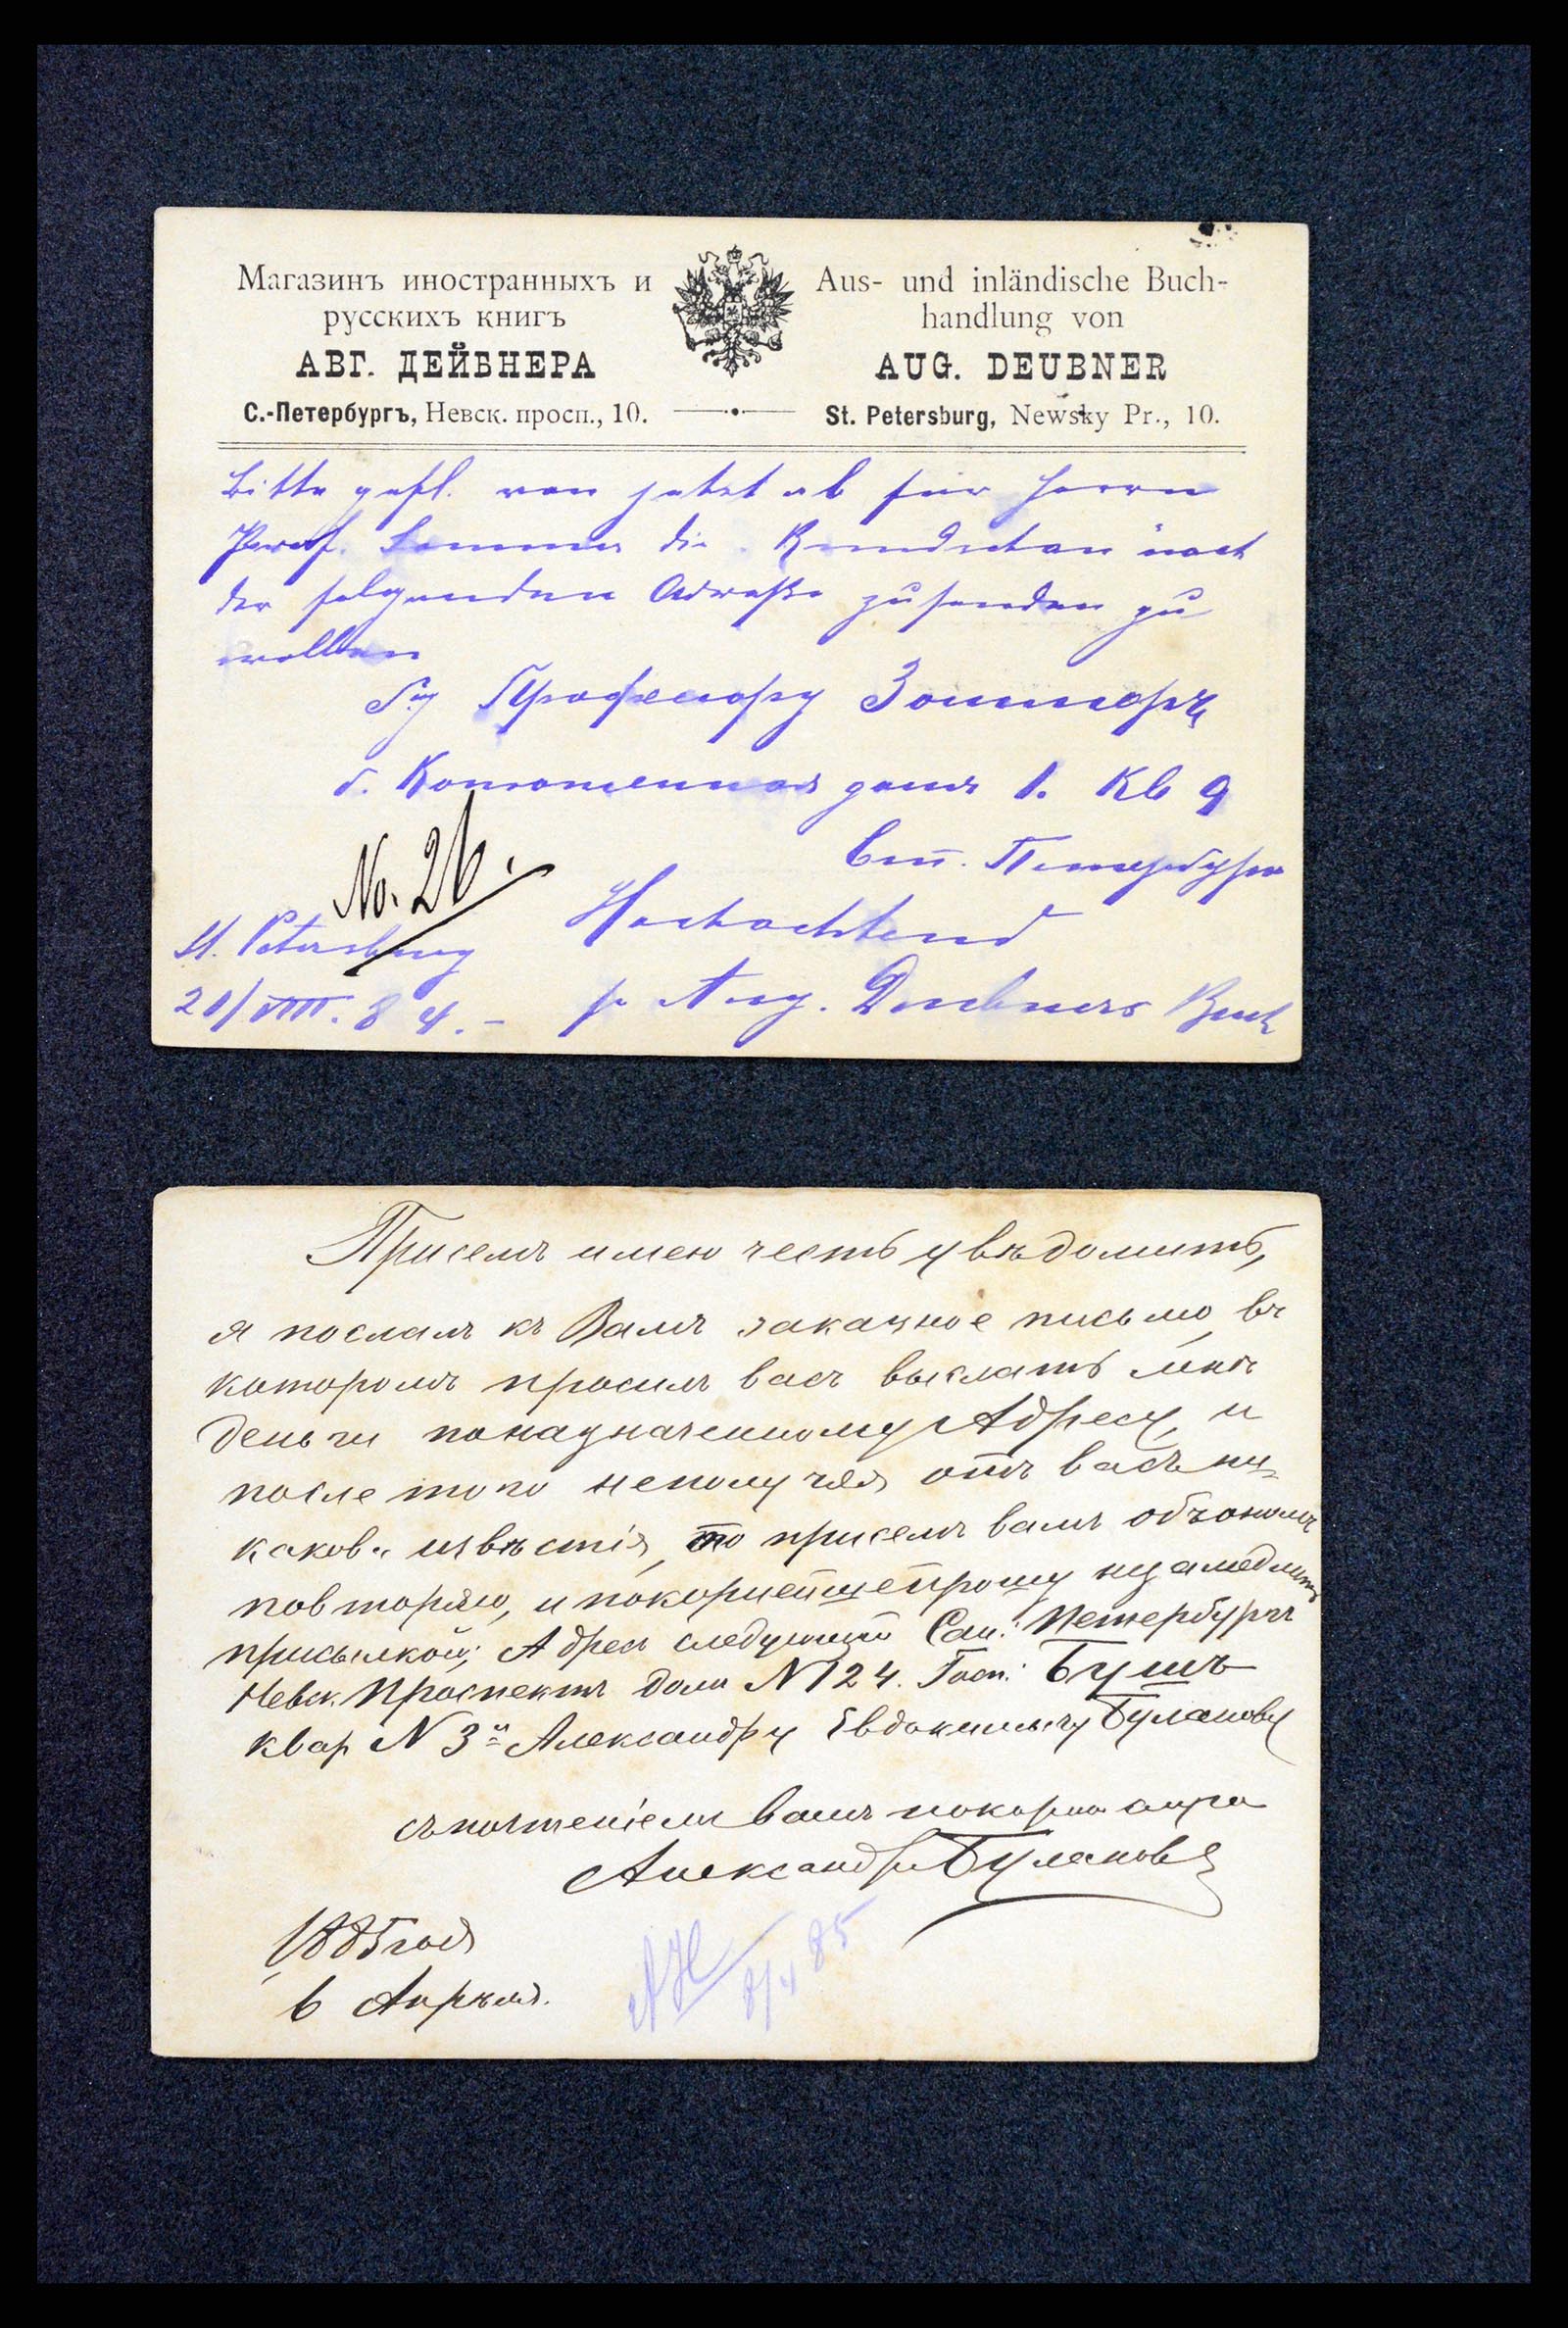 Магазинъ иностранныхъ и
русскихъ книгъ
АВГ. ДЕЙБНЕРА
С.-Петербургъ, Невск. просп., 10.
Aus- und inländische Buch-
handlung von
AUG. DEUBNER
St. Petersburg, Newsky Pr., 10.
Bitte gefl. von jetzt ab für Herrn
Prof. Sommer die Rundschau nach
der folgenden Adresse zusenden zu
wollen
Профессору Зоммеръ
б. Конюшенная домъ 1. Кв 9
Петербургъ
No. 26.
Hochachtend
St. Petersburg
21/VIII. 84.-
p Aug. Deubners Buch
Присемъ имею честь увѣдомить,
я послалъ къ Вамъ заказное письмо, въ
которомъ просилъ васъ выслать мнѣ
деньги поназначенному Адресу, и
после того неполучая отъ васъ ни-
какова извѣстія, то присемъ вамъ объономъ
повторяю, и покорнейше прошу
присылкой; Адресъ следующий Сан: Петербургъ
Невск. Проспектъ домъ N 124. Госп: Бушъ
квар N 3й Александру Евдокимычу Буланову
съ почтеніемъ вашъ покорный слуга
Александръ Булановъ
1885 года
6 Апрѣля.
8/4 85